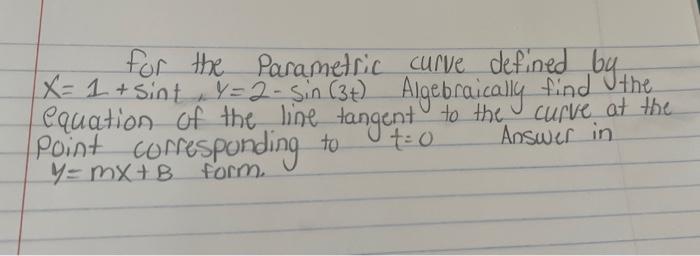 for the Parametric curve defined by
X= 1 + sint, Y=2-Sin(3t) Algebraically find the
equation of the line tangent to the curve at the
Point corresponding to t=0 Answer in
Y=mX+B form.